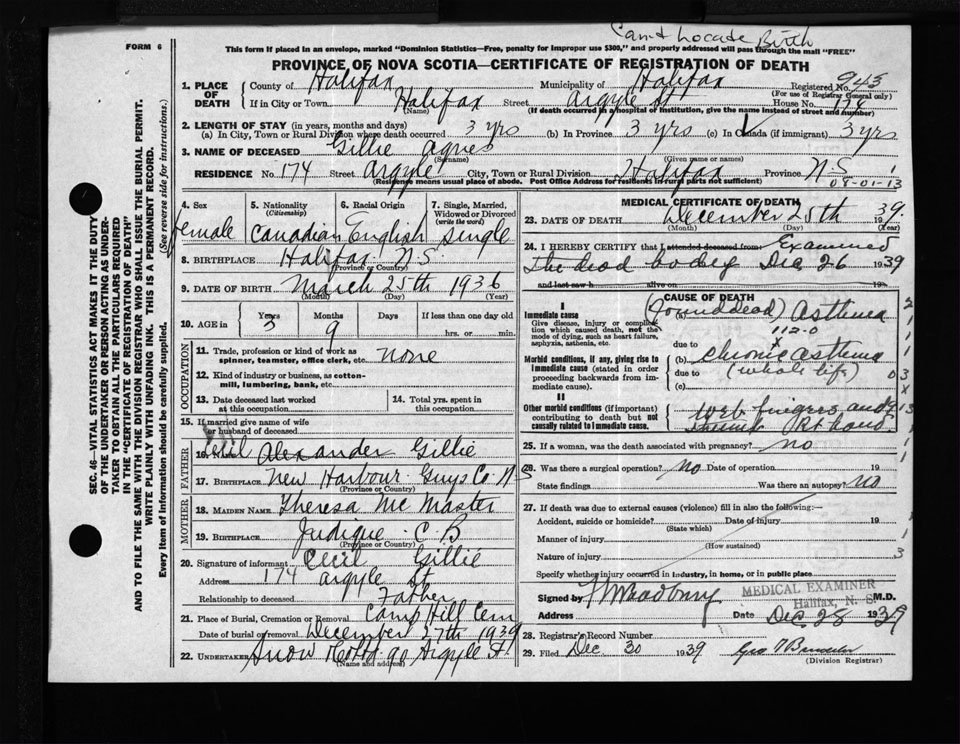 Can't Locate Birth
FORM 6
This form if placed in an envelope, marked "Dominion Statistics—Free, penalty for improper use $300," and properly addressed will pass through the mail "FREE"
PROVINCE OF NOVA SCOTIA—CERTIFICATE OF REGISTRATION OF DEATH
1. PLACE OF DEATH
County of Halifax Municipality of Halifax Registered No. 943
(For use of Registrar General only)
If in City or Town Halifax Street Argyle St House No. 174
(Name) (If death occurred in a hospital or institution, give the name instead of street and number)
2. LENGTH OF STAY (in years, months and days)
(a) In City, Town or Rural Division where death occurred 3 yrs (b) In Province 3 yrs (c) In Canada (if immigrant) 3 yrs
3. NAME OF DECEASED Gillie Agnes
(Surname) (Given name or names)
RESIDENCE No. 174 Street Argyle City, Town or Rural Division Halifax Province N.S
(Residence means usual place of abode. Post Office Address for residents in rural parts not sufficient)
08-01-13
4. Sex female
5. Nationality (Citizenship) Canadian
6. Racial Origin English
7. Single, Married, Widowed or Divorced (write the word) single
8. BIRTHPLACE Halifax N.S.
(Province or Country)
9. DATE OF BIRTH March 25th 1936
(Month) (Day) (Year)
10. AGE in Years 3 Months 9 Days If less than one day old hrs. or min.
OCCUPATION
11. Trade, profession or kind of work as spinner, teamster, office clerk, etc. none
12. Kind of industry or business, as cotton-mill, lumbering, bank, etc.
13. Date deceased last worked at this occupation
14. Total yrs. spent in this occupation
15. If married give name of wife or husband of deceased
FATHER
16. Cecil Alexander Gillie
17. BIRTHPLACE New Harbour Guys Co. N S
(Province or Country)
MOTHER
18. MAIDEN NAME Theresa Mc Master
19. BIRTHPLACE Judique C B
(Province or Country)
20. Signature of informant Cecil Gillie
Address 174 Argyle St
Relationship to deceased Father
21. Place of Burial, Cremation or Removal Camp Hill Cem
Date of burial or removal December 27th 1939
22. UNDERTAKER Snow & Co Ltd 90 Argyle St.
(Name and address)
MEDICAL CERTIFICATE OF DEATH
23. DATE OF DEATH December 25th 1939.
(Month) (Day) (Year)
24. I HEREBY CERTIFY that I attended deceased from Examined
The dead body Dec 26 1939
and last saw h alive on 19
CAUSE OF DEATH
I
Immediate cause
Give disease, injury or complication which caused death, not the mode of dying, such as heart failure, asphyxia, asthenia, etc.
(Found dead) Asthma
112-0
due to
Morbid conditions, if any, giving rise to immediate cause (stated in order proceeding backwards from immediate cause).
(b) chronic asthma
due to (whole life)
(c)
II
Other morbid conditions (if important) contributing to death but not causally related to immediate cause.
Web fingers and
thumb Rt hand.
25. If a woman, was the death associated with pregnancy? no
26. Was there a surgical operation? No Date of operation 19
State findings Was there an autopsy? No
27. If death was due to external causes (violence) fill in also the following:—
Accident, suicide or homicide? Date of injury 19
(State which)
Manner of injury
(How sustained)
Nature of injury
Specify whether injury occurred in industry, in home, or in public place
MEDICAL EXAMINER
Halifax, N. S.
Signed by M.D.
Address Date Dec 28 1939
28. Registrar's Record Number
29. Filed Dec 30 1939 Geo
(Division Registrar)
SEC. 46—VITAL STATISTICS ACT MAKES IT THE DUTY
OF THE UNDERTAKER OR PERSON ACTING AS UNDER-
TAKER TO OBTAIN ALL THE PARTICULARS REQUIRED
IN THE "CERTIFICATE OF REGISTRATION OF DEATH"
AND TO FILE THE SAME WITH THE DIVISION REGISTRAR WHO SHALL ISSUE THE BURIAL PERMIT.
WRITE PLAINLY WITH UNFADING INK. THIS IS A PERMANENT RECORD.
Every item of information should be carefully supplied. (See reverse side for instructions.)